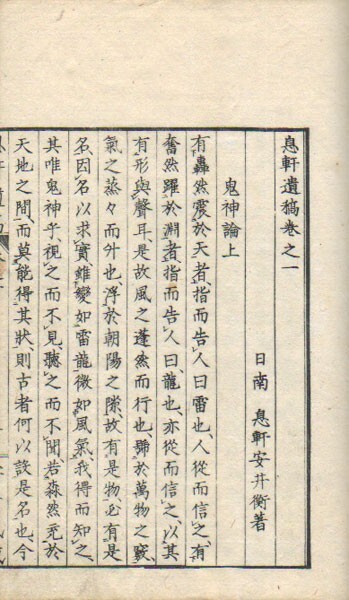 息軒遺稿巻之一
日南 息軒安井衡著
鬼神論上
有轟然震於天者、指而告人曰雷也、人從而信之、有
奮然躍於淵者、指而告人曰、龍也、亦從而信之、以其
有形與聲耳、是故風之蓬然而行也、號於萬物之竅、
氣之蒸々而升也、浮於朝陽之隙、故有是物、必有是
名、因名以求實、雖變如雷龍、微如風氣、我得而知之、
其唯鬼神乎、視之而不見、聽之而不聞、若森然充於
天地之間、而莫能得其狀、則古者何以設是名也、今